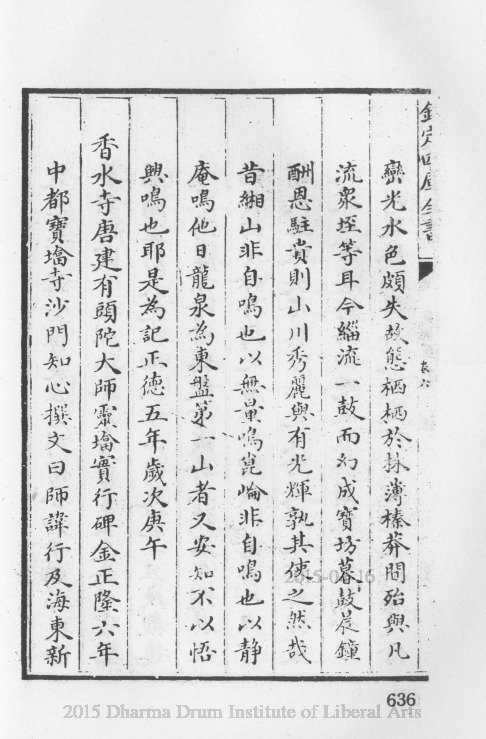 欽定四庫全書
巒光水色頗失故態栖栖於抹薄榛莽間殆與凡
流衆垤等耳今緇流一鼓而幻成寶坊暮鼓晨鐘
酬恩駐貴則山川秀麗與有光輝孰其使之然哉
昔緗山非自鳴也以無量鳴崑崘非自鳴也以静
庵鳴他日龍泉為東盤第一山者又安知不以悟
興鳴也耶是為記正德五年歲次庚午
香水寺唐建有頭陀大師靈塔實行碑金正隆六年
中都寶塔寺沙門知心撰文曰師諱行及海東新
636
2015 Dharma Drum Institute of Liberal Arts